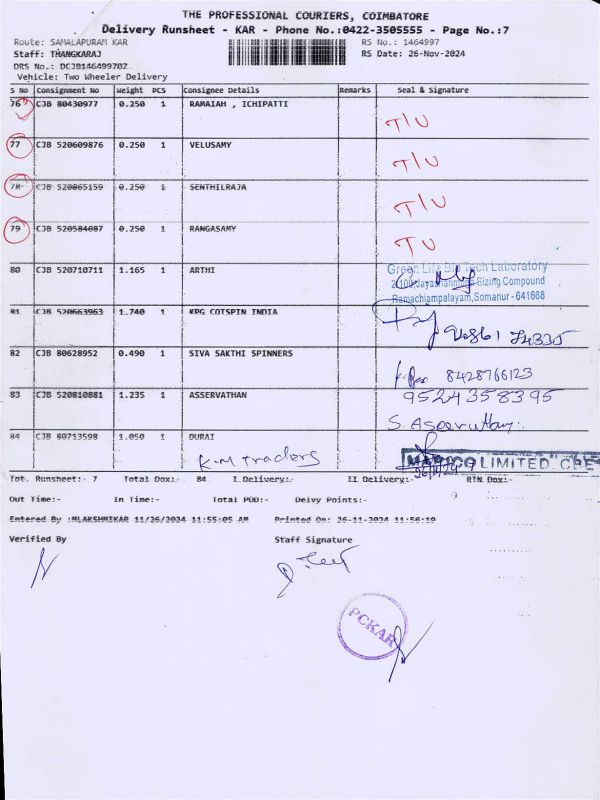 THE PROFESSIONAL COURIERS, COIMBATORE
Delivery Runsheet - KAR - Phone No.:0422-3505555 - Page No.:7
Route: SAMALAPURAM KAR RS No.: 1464997
Staff: THANGKARAJ RS Date: 26-Nov-2024
DRS No.: DCJB1464997OZ
Vehicle: Two Wheeler Delivery
S No Consignment No Weight PCS Consignee Details Remarks Seal & Signature
76 CJB 80430977 0.250 1 RAMAIAH , ICHIPATTI
T/U
77 CJB 520609876 0.250 1 VELUSAMY
T/U
78 CJB 520865159 0.250 1 SENTHILRAJA
T/U
79 CJB 520584087 0.250 1 RANGASAMY
T U
80 CJB 520710711 1.165 1 ARTHI
Green Life Bio Tech Laboratory
Sizing Compound
Ramachiampalayam, Somanur - 641668
81 CJB 520663963 1.740 1 KPG COTSPIN INDIA
82 CJB 80628952 0.490 1 SIVA SAKTHI SPINNERS
8428766123
83 CJB 520810881 1.235 1 ASSERVATHAN
9524358395
84 CJB 80713598 1.050 1 DURAI
K.M Traders
MARICO LIMITED. CBE
Tot. Runsheet:- 7 Total Dox:- 84 I Delivery:- II Delivery:- RTN Dox:-
Out Time:- In Time:- Total POD:- Deivy Points:-
Entered By :MLAKSHMIKAR 11/26/2024 11:55:05 AM Printed On: 26-11-2024 11:56:19
Verified By Staff Signature
PCKAR